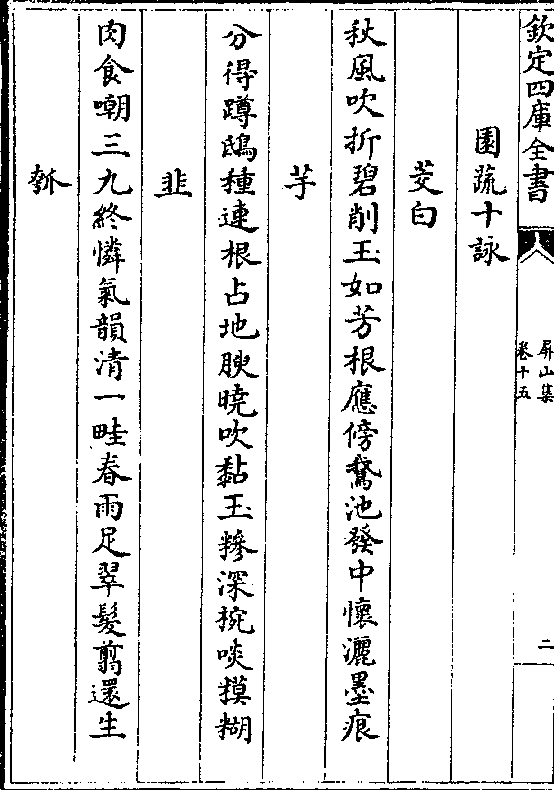 欽定四庫全書
屏山集
卷十五
二
園蔬十詠
茭白
秋風吹折碧削玉如芳根應傍鵞池發中懷灑墨痕
芋
分得蹲鴟種連根占地腴曉吹黏玉糝深捥啖摸糊
韭
肉食嘲三九終憐氣韻清一畦春雨足翠髮翦還生
瓠